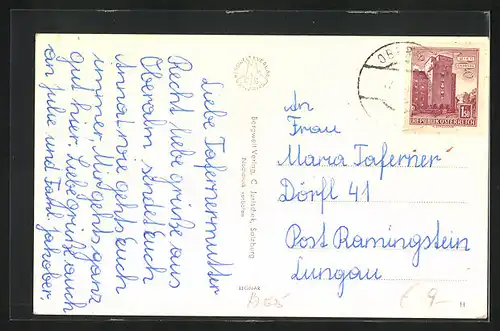 Liebe Tafernermutter
Recht liebe grüße aus
Oberalm sendet Euch
Anna! wie gehts Euch
immer, Mir gehts ganz
gut hier. Liebe grüße auch
an Julie und Fahl. Jakober.
Bergwelt-Verlag, C. Jurischek, Salzburg
Nachdruck verboten
BEGNAR
An
Frau
Maria Taferner
Dörfl 41
Post Ramingstein
Lungau
REPUBLIK ÖSTERREICH
1.50
OBER